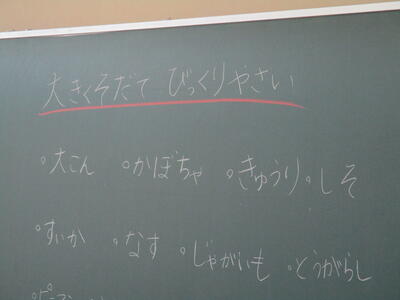 大きくそだて びっくりやさい
°大こん °かぼちゃ °きゅうり °しそ
°すいか °なす °じゃがいも °とうがらし